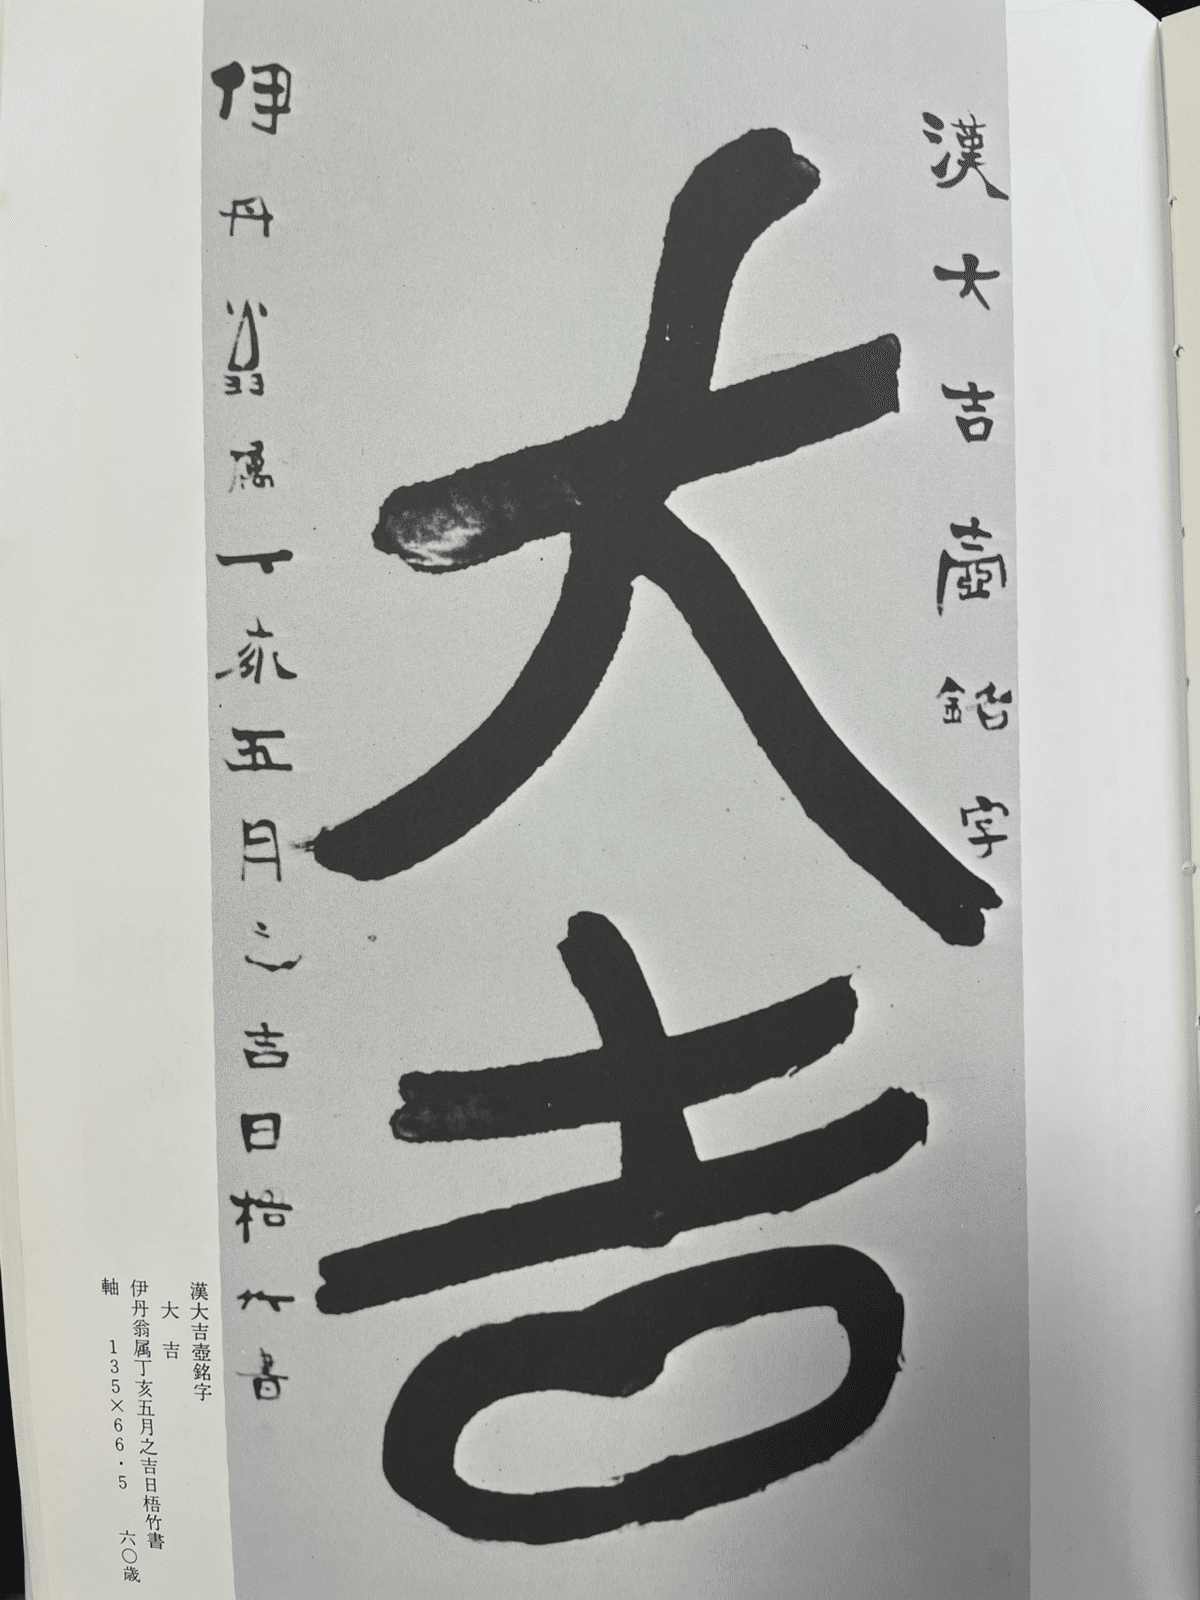 漢大吉壺銘字
大吉
伊丹翁属丁亥五月之吉日梧竹書
漢大吉壺銘字
大吉
伊丹翁属丁亥五月之吉日梧竹書
軸 135×66・5 六〇歳